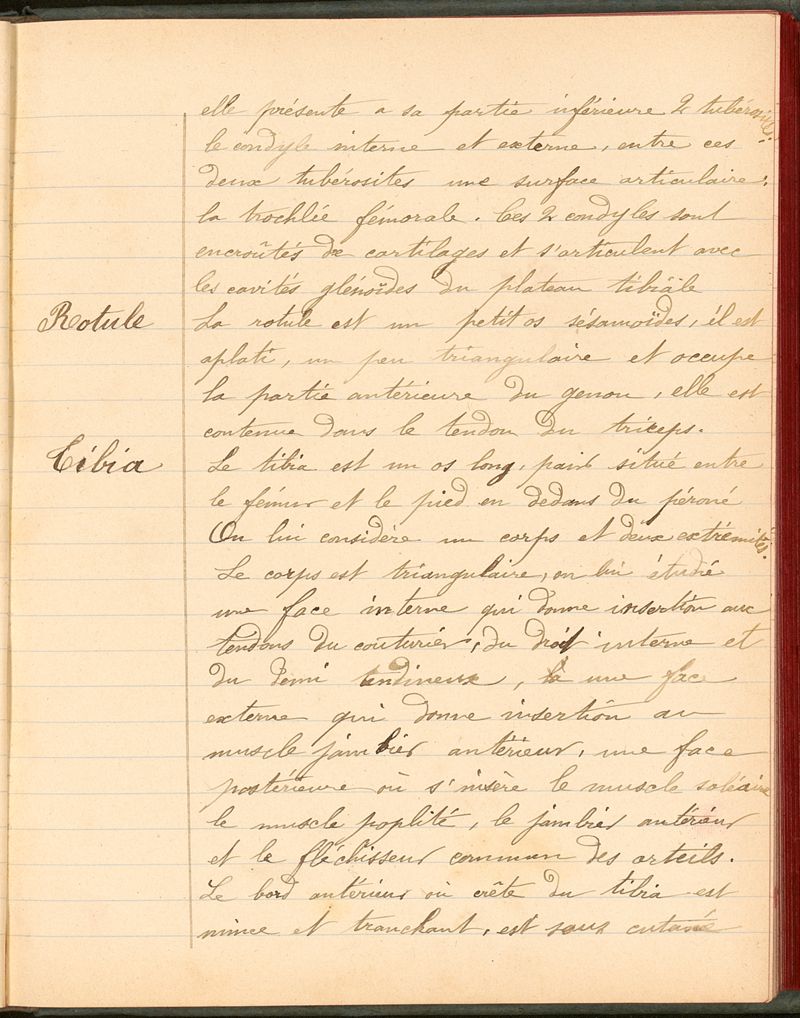 elle présente a sa partie inférieure 2 tubérosités:
le condyle interne et externe, entre ces
deux tubérosites une surface articulaire:
la trochlée fémorale. Ces 2 condyles sont
encroûtés de cartilages et s'articulent avec
les cavités glénoïdes du plateau tibiale
Rotule
La rotule est un petit os sésamoïdes, il est
aplati, un peu triangulaire et occupe
la partie antérieure du genou, elle est
contenue dans le tendon du triceps.
Tibia
Le tibia est un os long, pair situé entre
le fémur et le pied en dedans du péroné
On lui considère un corps et deux extrémités.
Le corps est triangulaire, on lui étudie
une face interne qui donne insertion aux
tendons du couturier, du droit interne et
du demi tendineux, une face
externe qui donne insertion au
muscle jambier antérieur, une face
postérieure où s'insère le muscle soléaire
le muscle poplité, le jambier antérieur
et le fléchisseur commun des orteils.
Le bord antérieur où crête du tibia est
mince et tranchant, est sous cutané